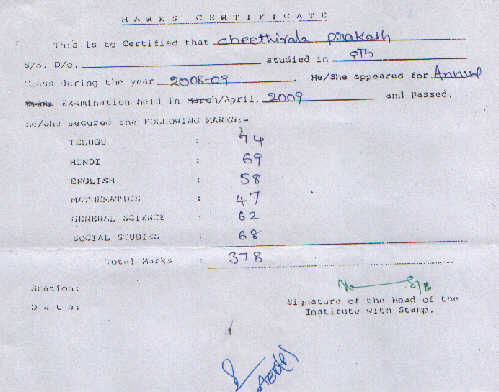 MARKS CERTIFICATE
This is to Certified that cheethirala prakash
S/o. D/o. studied in 9Th
Class during the year 2008-09 He/She appeared for Annual
Examination held in March/April, 2009 and Passed.
He/She secured the FOLLOWING MARKS:-
TELUGU : 74
HINDI : 69
ENGLISH : 58
MATHEMATICS : 47
GENERAL SCIENCE : 62
SOCIAL STUDIES : 68
Total Marks : 378
Station:
Date:
Signature of the Head of the
Institute with Stamp.